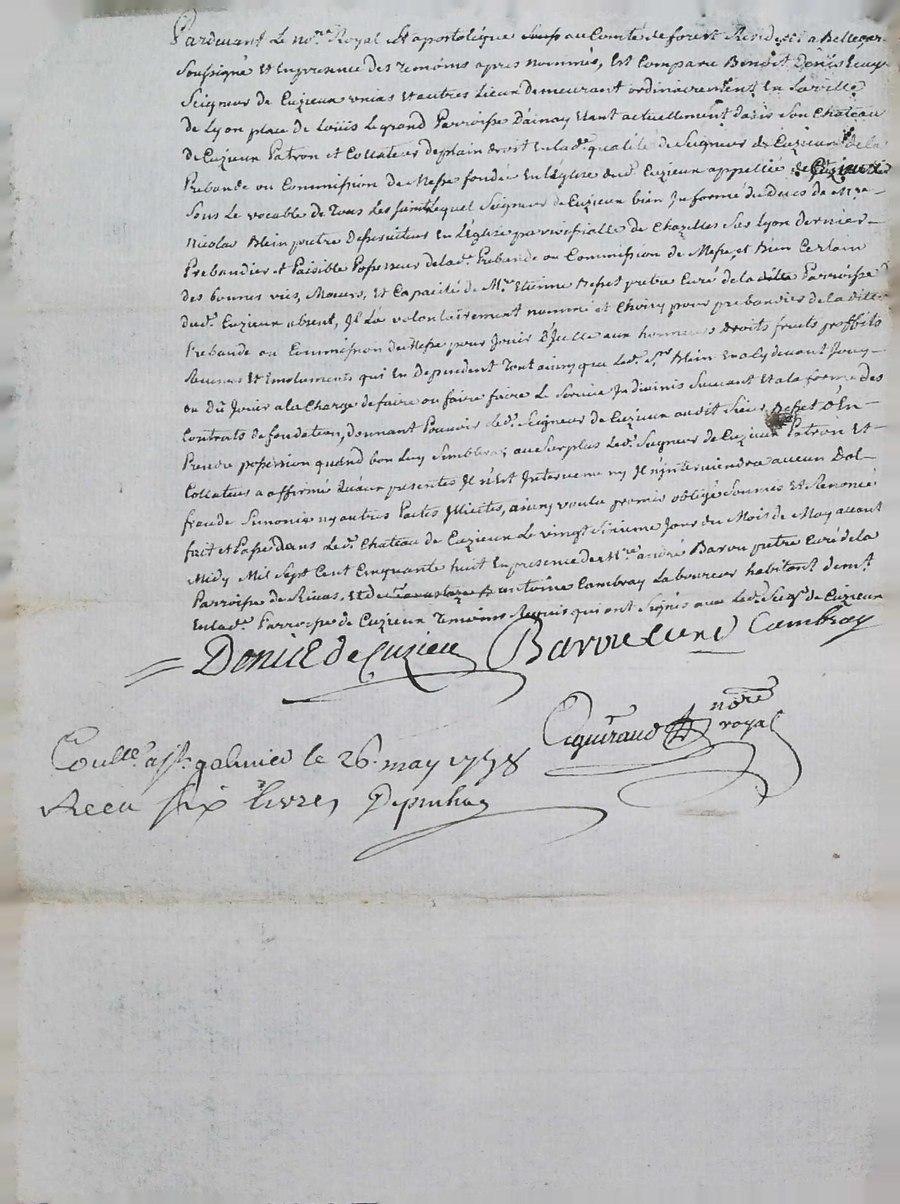 Pardevant Le no.re Royal Et apostolique au Comté de forest Resident a Bellegar
Soussigné et En presence des Temoins apres nommés, Est Comparu Benoit Denis
Seigneur de Cuzieux unias et autres Lieux demeurant ordinairement En La ville
de Lyon place de Loüis Le grand Parroisse D'ainay Etant actuellement dans Son Chateau
de Cuzieux Patron et Collateur de plain droit En lad.e qualité de Seigneur de Cuzieux de la
Prebande ou Commission de Messe fondée En L'église dud. Cuzieux appellée
Sous Le vocable de Tous Les saints Lequel Seigneur de Cuzieux bien Informé du deces de M.re
Nicolas Blein pretre Desserviteur En L'église parroissialle de Chazelles Sur Lyon dernier
Prebandier et Paisible Possesseur de lad.e Prebande ou Commission de Messe, et Bien Certain
des bonnes vies, Moeurs, et Capacité de M.re Etienne Besset pretre Curé de la Parroisse
dud. Cuzieux absent, Il L'a volontairement nommé et Choisy pour prebandier de la ditte
Prebande ou Commission de Messe pour Jouir D'Icelle aux honneurs droits fruits proffits
Revenus Et Emoluments qui En Dependent Tout ainsy que led. S.r Blein En a Cy devant Jouy
ou Dü Jouir a la Charge de faire ou faire faire Le Service Indivinis Suivant Et a la forme des
Contrats de fondation, donnant Pouvoir Led. Seigneur de Cuzieux audit Sieur Besset D'En
Prendre possession quand bon Luy Semblera; au Surplus Led. Seigneur de Cuzieux Patron Et
Collateur a affirmé Qu'aux presentes Il n'Est Intervenu ny Il n'interviendra aucun Dol
fraude Simonie ny autres Pactes Illicites, ainsy voulu promis obligé Soumis Et Renoncé
fait et Passé Dans Led. Chateau de Cuzieux Le vingt Sixieme Jour du Mois de May avant
Midy Mil Sept Cent Cinquante huit En presence de M.re andré Barou pretre Curé de la
Parroisse de Rivas, Et de antoine Cambray Laboureur habitant dem.t
En lad.e Parroisse de Cuzieux Temoins Requis qui ont Signés avec Led. Seig.r de Cuzieux
Denis de Cuzieu Barou curé Cambray
no.re
royal
Coull.e a st galmier le 26. may 1758
Receu six livres